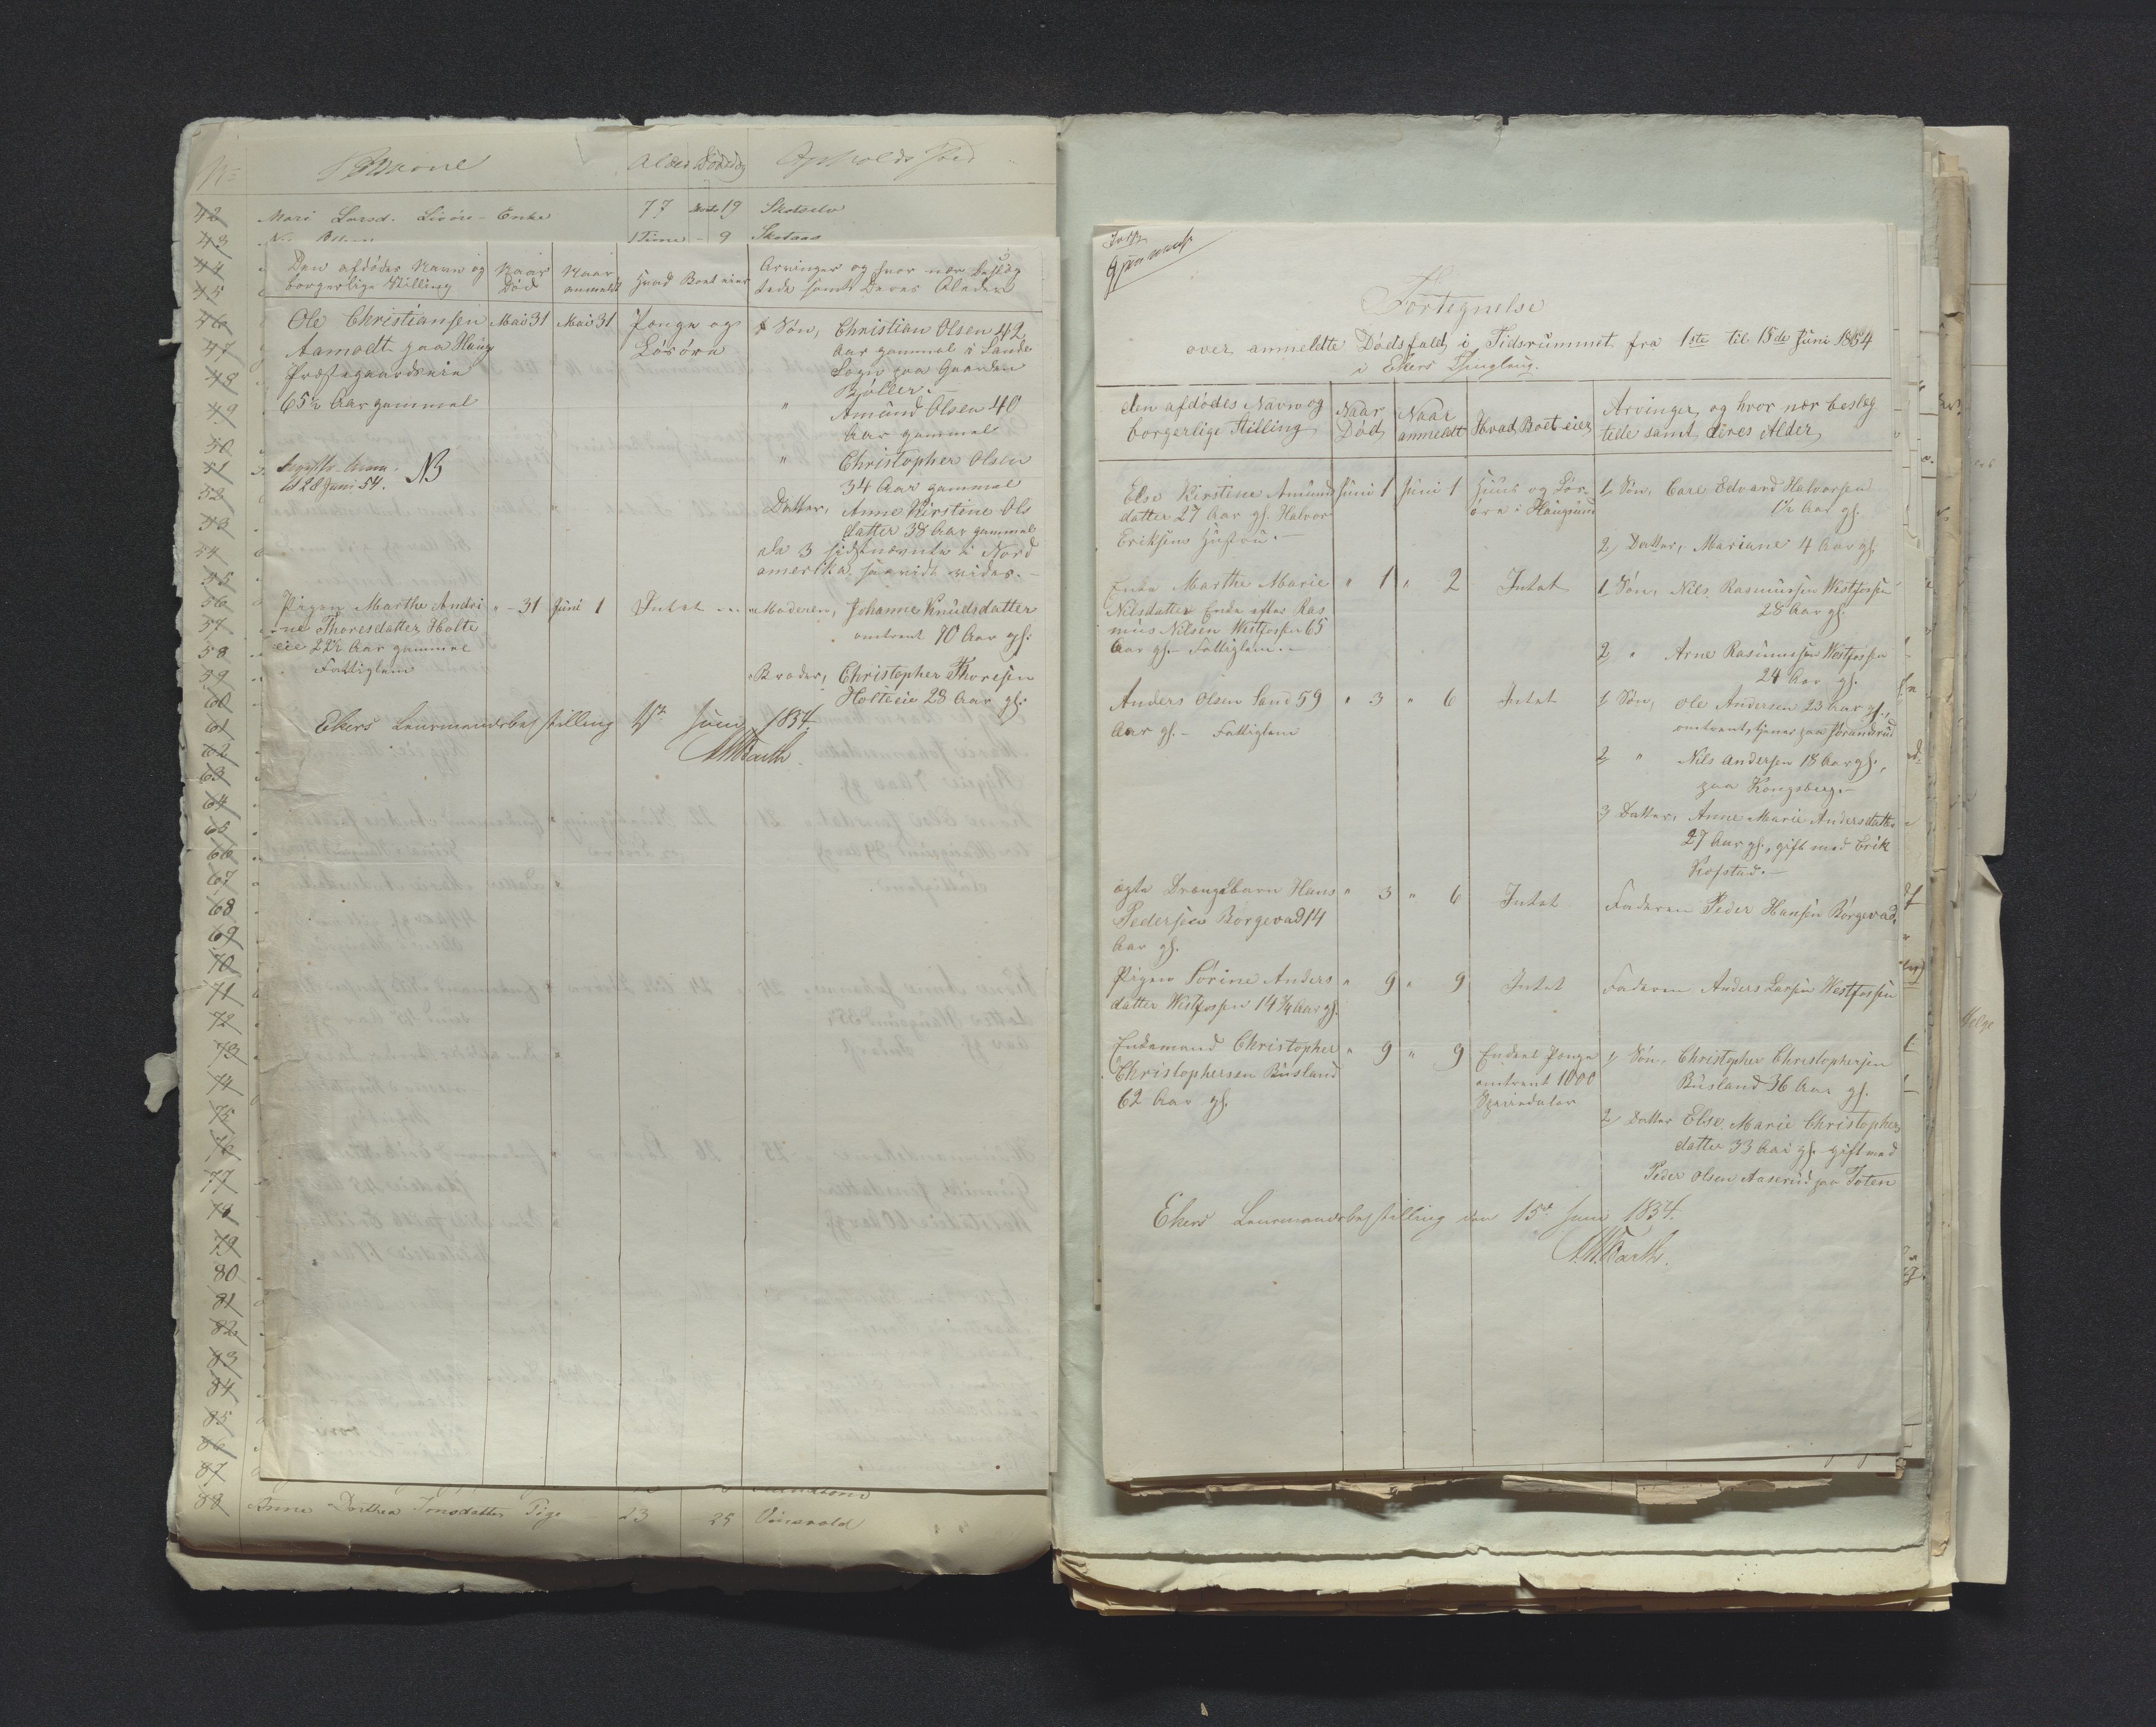 No Navne Alder Dødsdag Opholdssted
42 Mari Larsd. Enke 77 19 Skotselv
43 1 Time - 9 Skotaas
44
45
46
47
48
49
50
51
52
53
54
55
56
57
58
59
60
61
62
63
64
65
66
67
68
69
70
71
72
73
74
75
76
77
78
79
80
81
82
83
84
85
86
87
88 Anne Dorthea Tige 23 25
Den afdødes Navn og borgerlige Stilling
Naar Død
Naar anmeldt
Hvad Boet eier
Arvinger og hvor nær beslæg
tede samt Deres Alder
Ole Christiansen Mai 31 Mai 31 Penge og 1 Søn, Christian Olsen 42
Aamodt paa Haug Løsøre Aar gammel i Sande
Præstegaardseie Sogn paa Gaarden
65½ Aar gammel
" Amund Olsen 40
Aar gammel
28 Juni 54. NB " Christopher Olsen
34 Aar gammel
Datter, Anne Kirstine Ols
datter 38 Aar gammel
de 3 sidstnævnte i Nord
amerika saavidt vides. -
Pigen Marthe Andri " - 31 Juni 1 Intet Moderen, Johanne Knudsdatter
ne Thoresdatter Holte omtrent 70 Aar gl.
eie 22½ Aar gammel
Fattiglem
Broder, Christopher Thoresen
Holteeie 28 Aar gl.
Ekers Lensmandsbestilling 15de Juni 1854.
Barth
Fortegnelse
over anmeldte Dødsfald i Tidsrummet fra 1ste til 15de Juni 1854
i Ekers Thinglaug.
den afdødes Navn og borgerlige Stilling
Naar Død
Naar anmeldt
Hvad Boet eier
Arvinger og hvor nær beslæg
tede samt deres Alder
Else Kirstine Amunds Juni 1 Juni 1 Huus og Løs- 1, Søn, Carl Edvard Halvorsen
datter 27 Aar gl. Halvor øre i Haugsund 1½ Aar gl.
Eriksens Hustru. -
2, Datter, Mariane 4 Aar gl.
Enke Marthe Marie " 1 " 2 Intet 1, Søn, Nils Rasmussen Westfossen
Nilsdatter Enke efter Ras 28 Aar gl.
mus Nilsen Westfossen 65
Aar gl. - Fattiglem. - 2, " Arne Rasmussen Westfossen
24 Aar gl.
Anders Olsen Sand 59 " 3 " 6 Intet 1, Søn, Ole Andersen 23 Aar gl.,
Aar gl. - Fattiglem omtrent, tjener paa
2, " Nils Andersen 18 Aar gl.,
paa Kongsberg. -
3 Datter, Anne Marie Andersdatter
27 Aar gl., gift med Erik
Kofstad. -
ægte Drengebarn Hans " 3 " 6 Intet Faderen Peder Hansen Borgevad.
Pedersen Borgevad 14
Aar gl.
Pigen Sørine Anders " 9 " 9 Intet Faderen Anders Larsen Westfossen
datter Westfossen 14¾ Aar gl.
Enkemand Christopher " 9 " 9 Endeel Penge 1, Søn, Christopher Christophersen
Christophersen Busland omtrent 1000 Busland 36 Aar gl.
62 Aar gl. Speciedaler
2, Datter Else Marie Christophers
datter 33 Aar gl. gift med
Peder Olsen Aaserud paa Toten
Ekers Lensmandsbestilling den 15de Juni 1854.
Barth.